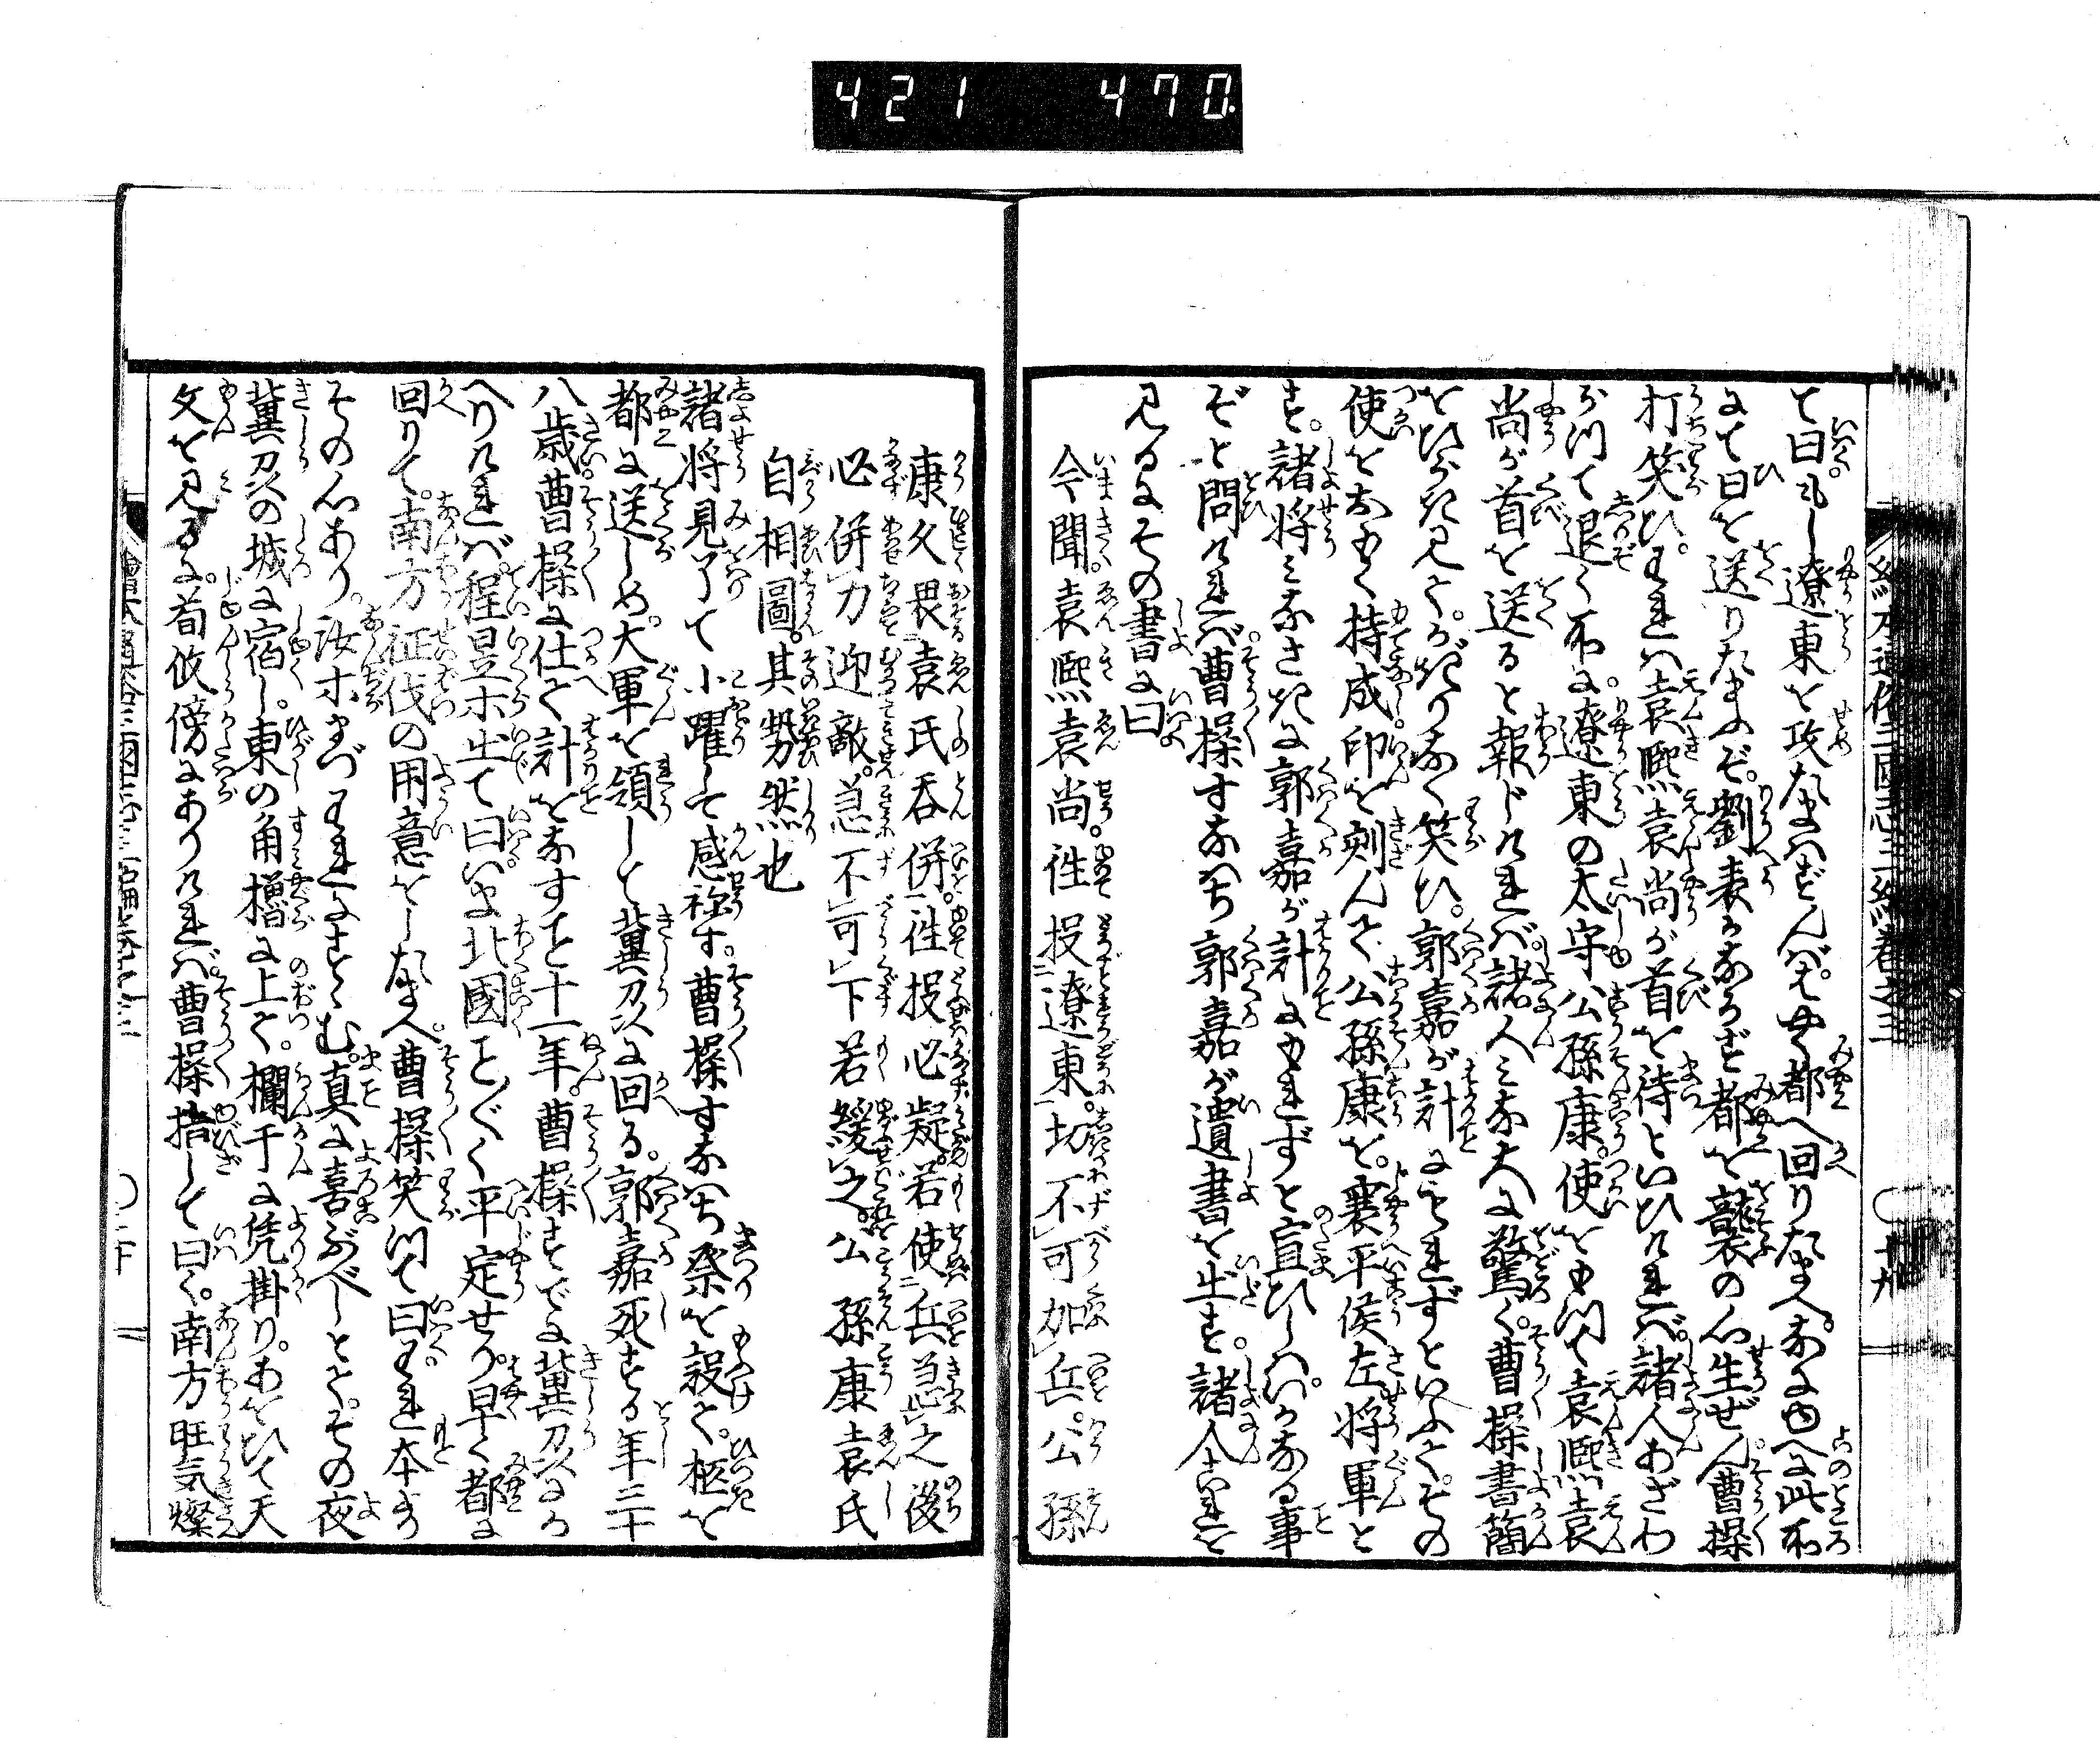 421 470
て曰。もし遼東を攻たまハずんバ。はやく都へ回りたまへ。なにゆへに此所
にて日を送りたまふぞ。劉表かならず都を襲の心生ぜん。曹操
打笑ひ。われハ袁熈袁尚が首を待といひけれバ。諸人あざわ
らつて退く所に。遼東の太守公孫康。使をもつて袁熈袁
尚が首を送ると報じけれバ。諸人ミな大に驚く。曹操書簡
をひらき見て。かぎりなく笑ひ。郭嘉が計にもれずといふて。その
使をおもく持成。印を刻んで公孫康を。襄平侯左将軍と
す。諸将ミなさきに郭嘉が計にもれずと宣ひしハ。いかなる事
ぞと問けれバ。曹操すなハち郭嘉が遺書を出す。諸人これを
見るにその書に曰
今聞。袁熈袁尚。徃投遼東。切不可加兵。公孫
康久畏袁氏呑併。徃投必疑。若使兵急之後
必併力迎敵。急不可下若緩之。公孫康袁氏
自相圖。其勢然也
諸将見了て小躍して感称す。曹操すなハち祭を設て。柩を
都に送しめ。大軍を領して冀州に回る。郭嘉死する年三十
八歳。曹操に仕て計をなすこと十一年。曹操すでに冀州にか
へりけれバ。程昱ホ出て曰。いま北國こと〲く平定せり。早く都に
回りて。南方征伐の用意をしたまへ。曹操笑つて曰。われ本より
その心あり。汝ホまづわれにすゝむ。真に喜ぶべしとて。その夜
冀州の城に宿し。東の角櫓に上て。欄干に凭掛り。あをひで天
文を見るに。荀攸傍にありけれバ。曹操指して曰く。南方旺気燦